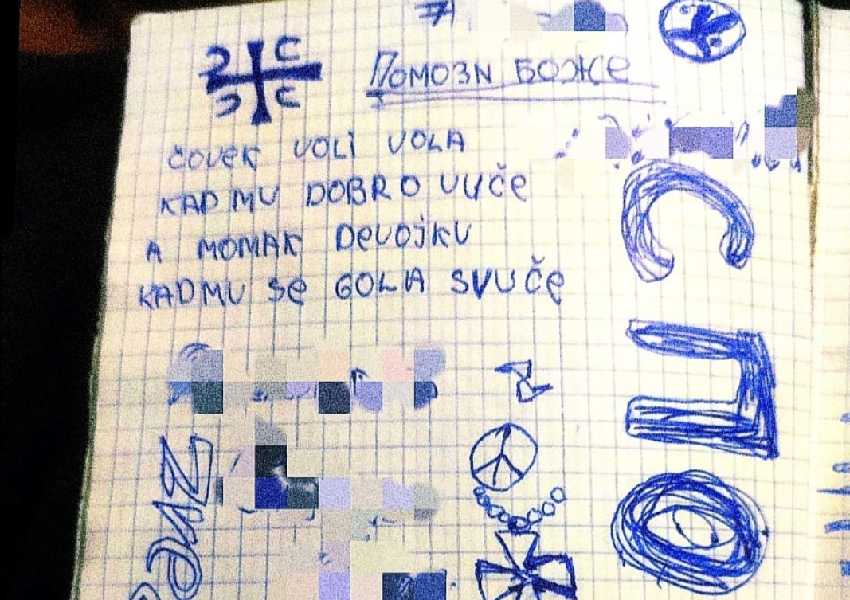 ПОМОЗИ БОЖЕ
ČOVEK VOLI VOLA
KAD MU DOBRO VUČE
A MOMAK DEVOJKU
KAD MU SE GOLA SVUČE
СПО